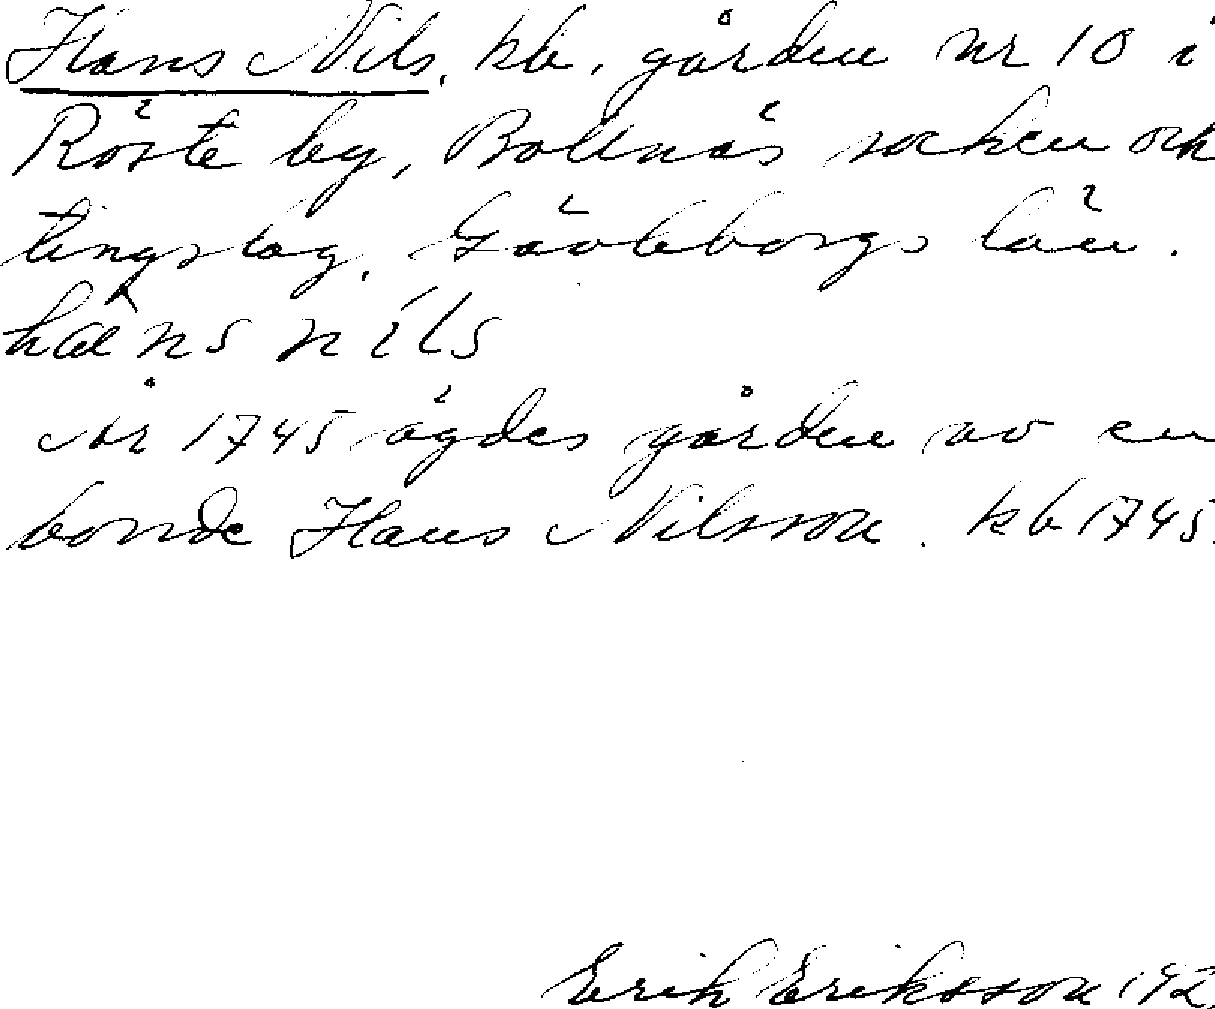 Hans Nils, kb. gården nr 10 i
Röste by, Bollnäs socken och
tingslag, Gävleborgs län.
hans nils
År 1745 ägdes gården av en
bonde Hans Nilsson. kb 1745.
Erik Eriksson 192